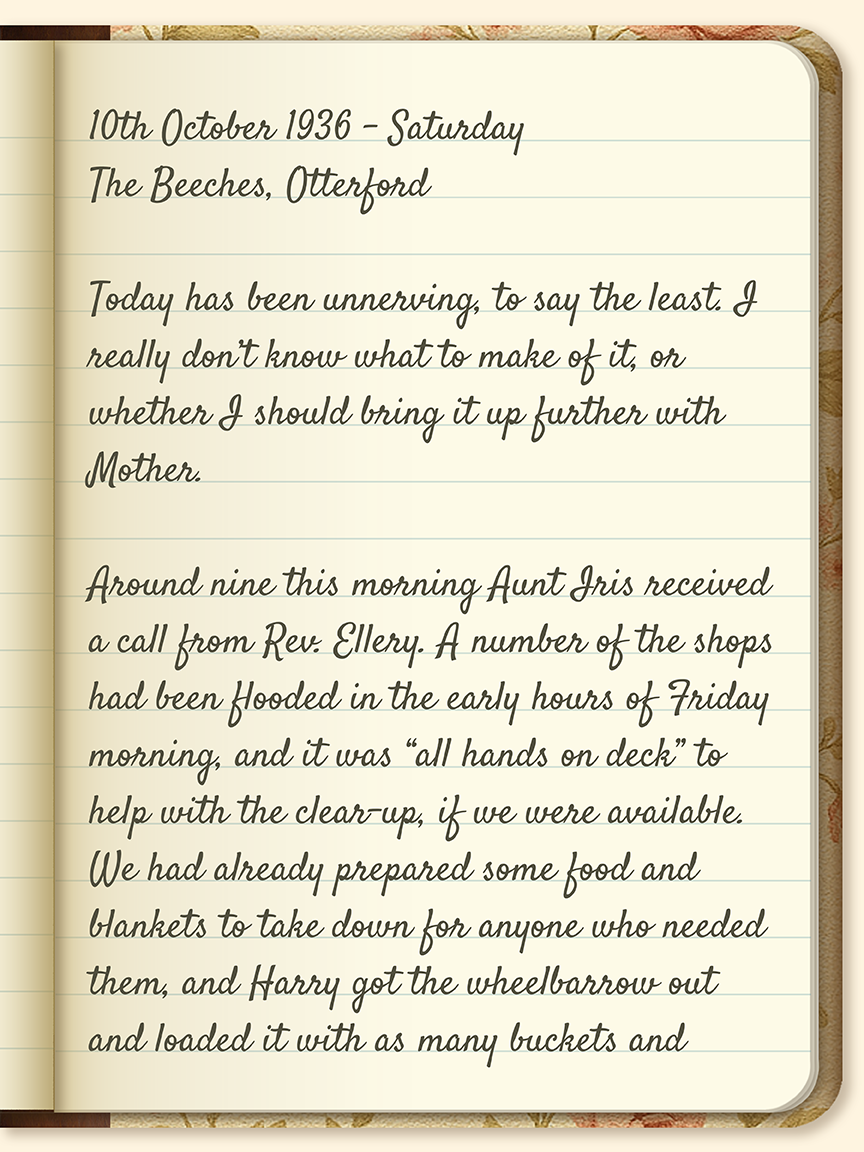 10th October 1936 – Saturday
The Beeches, Otterford
Today has been unnerving, to say the least. I
really don’t know what to make of it, or
whether I should bring it up further with
Mother.
Around nine this morning Aunt Iris received
a call from Rev. Ellery. A number of the shops
had been flooded in the early hours of Friday
morning, and it was “all hands on deck” to
help with the clear-up, if we were available.
We had already prepared some food and
blankets to take down for anyone who needed
them, and Harry got the wheelbarrow out
and loaded it with as many buckets and